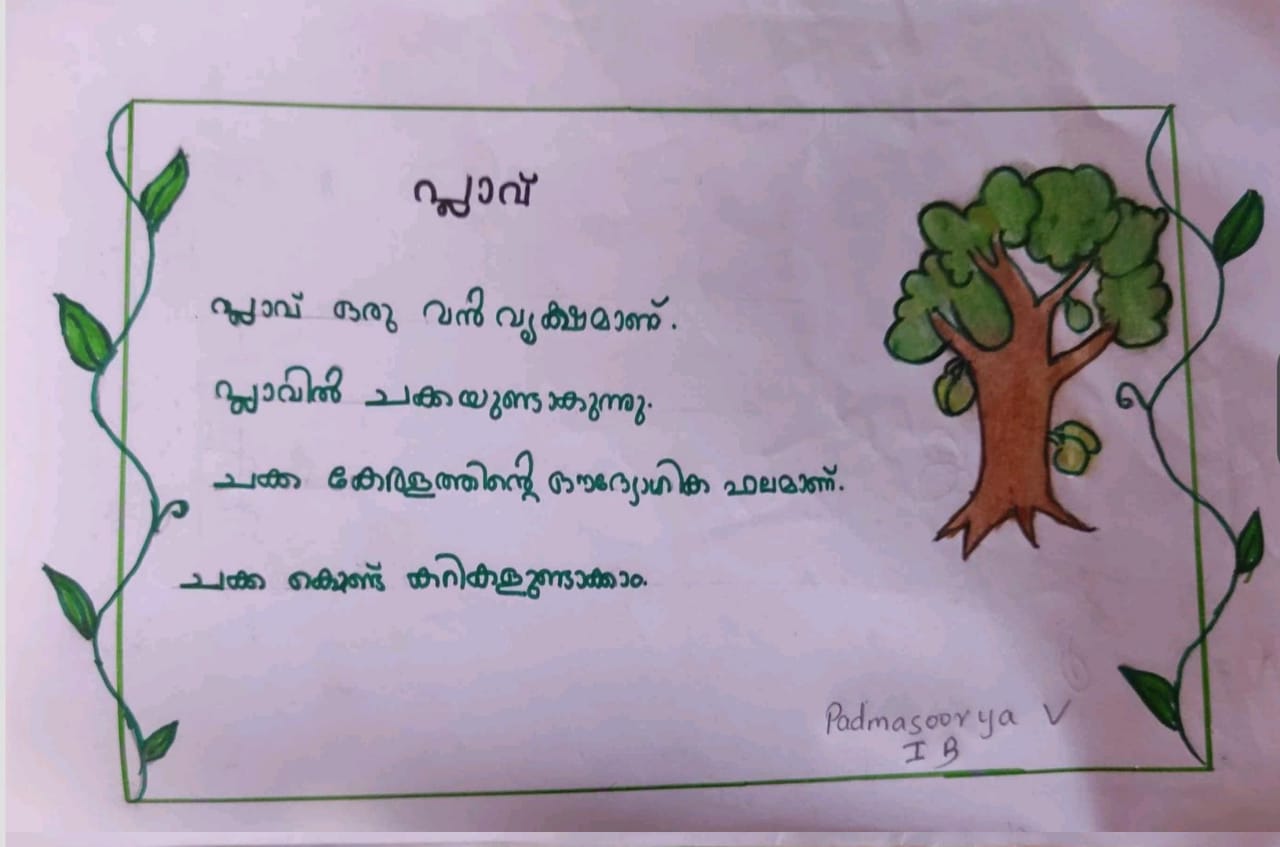 പ്ലാവ്
പ്ലാവ് ഒരു വൻ വൃക്ഷമാണ്.
പ്ലാവിൽ ചക്കയുണ്ടാകുന്നു.
ചക്ക കേരളത്തിന്റെ ഔദ്യോഗിക ഫലമാണ്.
ചക്ക കൊണ്ട് കറികളുണ്ടാക്കാം.
Padmasoorya V
I B